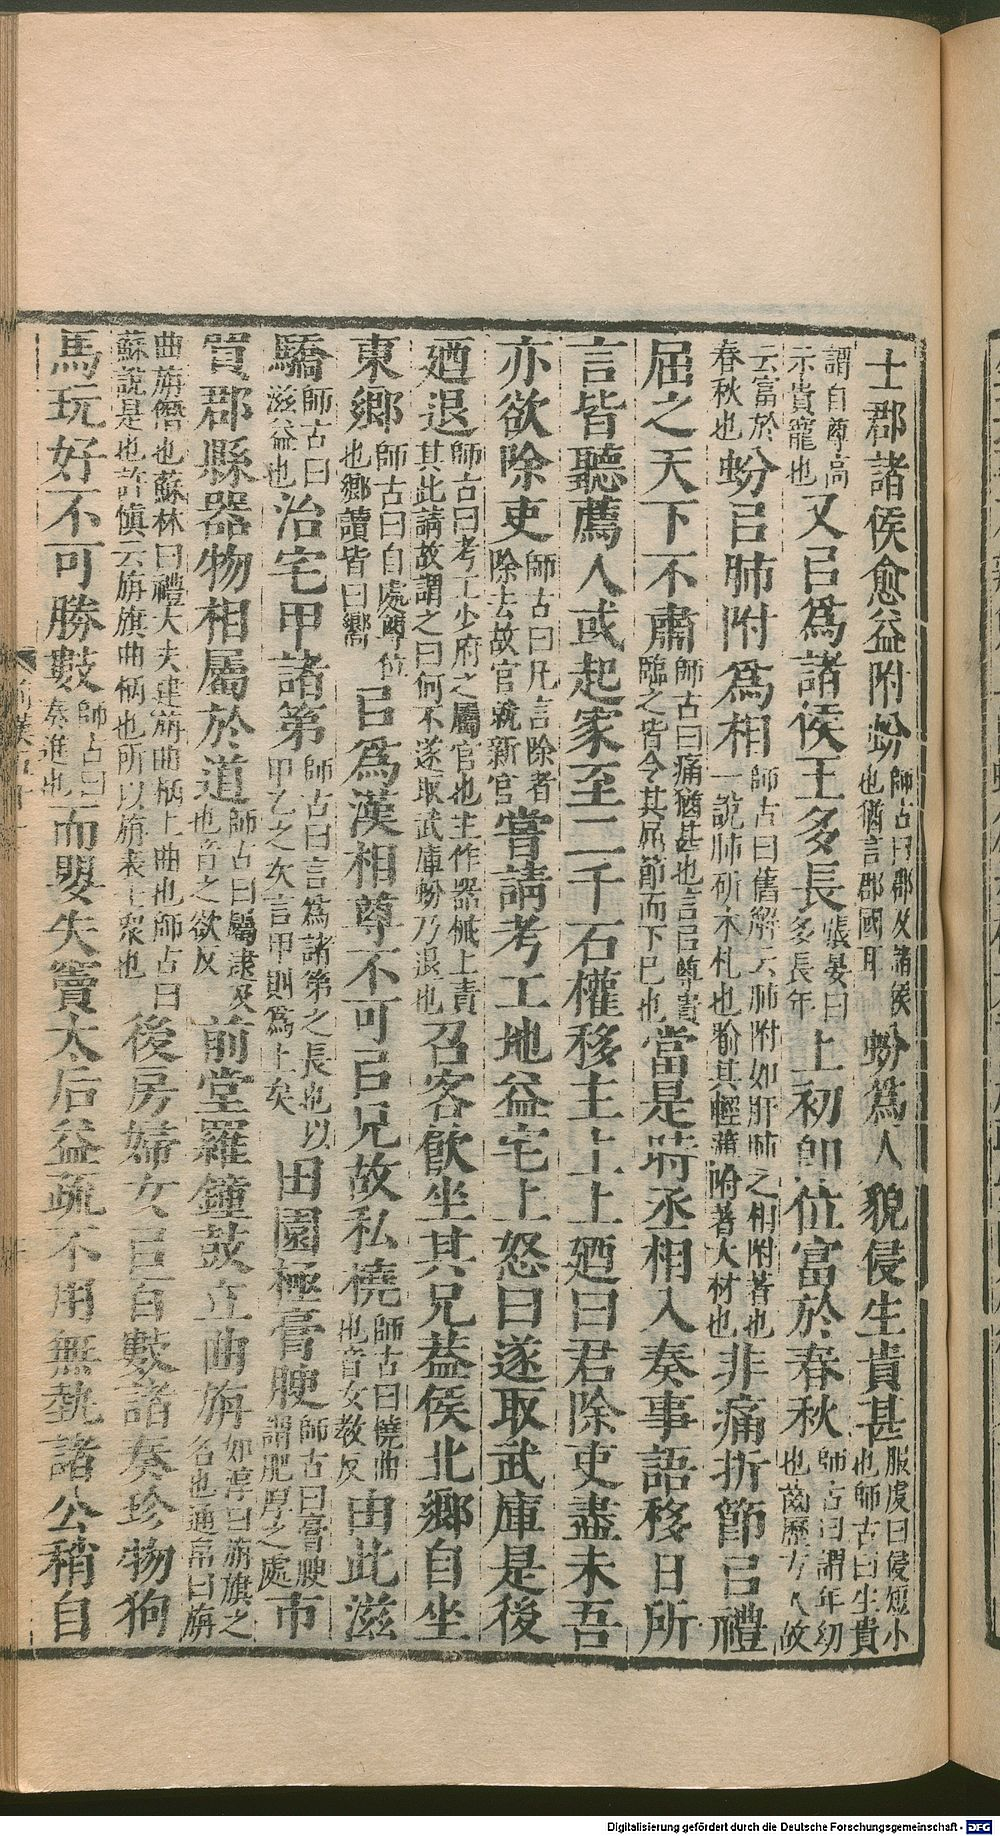 士郡諸侯愈益附蚡師古曰郡及諸侯也猶言郡國耳蚡為人貌侵生貴甚服虔曰侵短小也師古曰生貴
謂自尊高示貴寵也又㠯為諸侯王多長張晏曰多長年上初即位富於春秋師古曰謂年幼也齒歷方久故
云富於春秋也蚡㠯肺附為相師古曰舊解云肺附如肝肺之相附著也一說肺斫木札也喻其輕薄附著大材也非痛折節㠯禮
屈之天下不肅師古曰痛猶甚也言㠯尊貴臨之皆令其屈節而下己也當是時丞相入奏事語移日所
言皆聽薦人或起家至二千石權移主上上廼曰君除吏盡未吾
亦欲除吏師古曰凡言除者除去故官就新官嘗請考工地益宅上怒曰遂取武庫是後
廼退師古曰考工少府之屬官也主作器械上責其此請故謂之曰何不遂取武庫蚡乃退也召客飲坐其兄蓋侯北鄉自坐
東鄉師古曰自處尊位也鄉讀皆曰嚮㠯為漢相尊不可㠯兄故私橈師古曰橈曲也音女教反由此滋
驕師古曰滋益也治宅甲諸第師古曰言為諸第之長也以甲乙之次言甲則為上矣田園極膏腴師古曰膏腴謂肥厚之處市
買郡縣器物相屬於道師古曰屬逮及也音之欲反前堂羅鐘鼓立曲旃如淳曰旃旗之名也通帛曰旃
曲旃僭也蘇林曰禮大夫建旃曲柄上曲也師古曰蘇說是也許慎云旃旗曲柄也所以旃表士衆也後房婦女㠯百數諸奏珍物狗
馬玩好不可勝數師古曰奏進也而嬰失竇太后益疏不用無埶諸公稍自
Digitalisierung gefördert durch die Deutsche Forschungsgemeinschaft - DFG